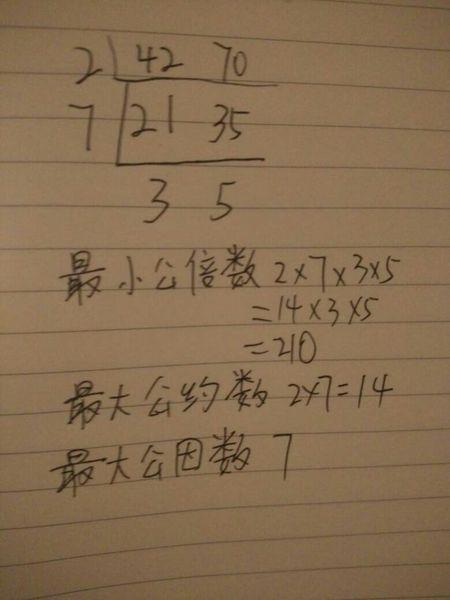 2 42 70
7 21 35
3 5
最小公倍数 2×7×3×5
=14×3×5
=210
最大公约数 2×7=14
最大公因数 7